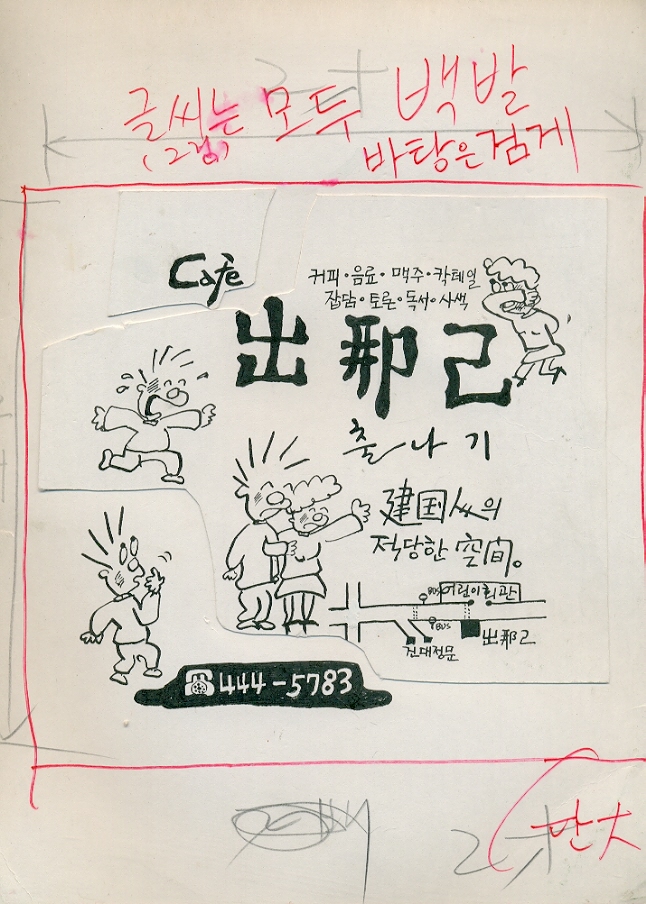 글씨는 모두 백발
(그림)
바탕은 검게
Cafe
커피·음료·맥주·칵테일
잡담·토론·독서·사색
出那己
출나기
建国人의
적당한 空間。
BUS
어린이회관
BUS
出那己
건대정문
☎444-5783
반大